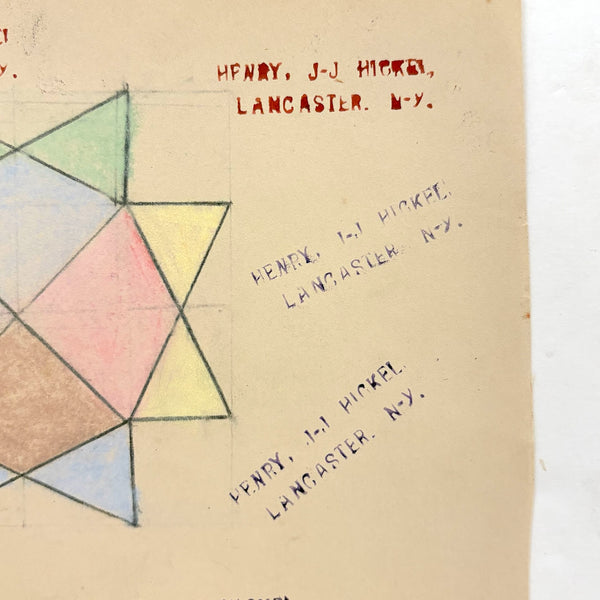 HENRY, J-J HICKEL,
LANCASTER. N-Y.
HENRY, J-J HICKEL,
LANCASTER. N-Y.
HENRY, J-J HICKEL
LANCASTER. N-Y.